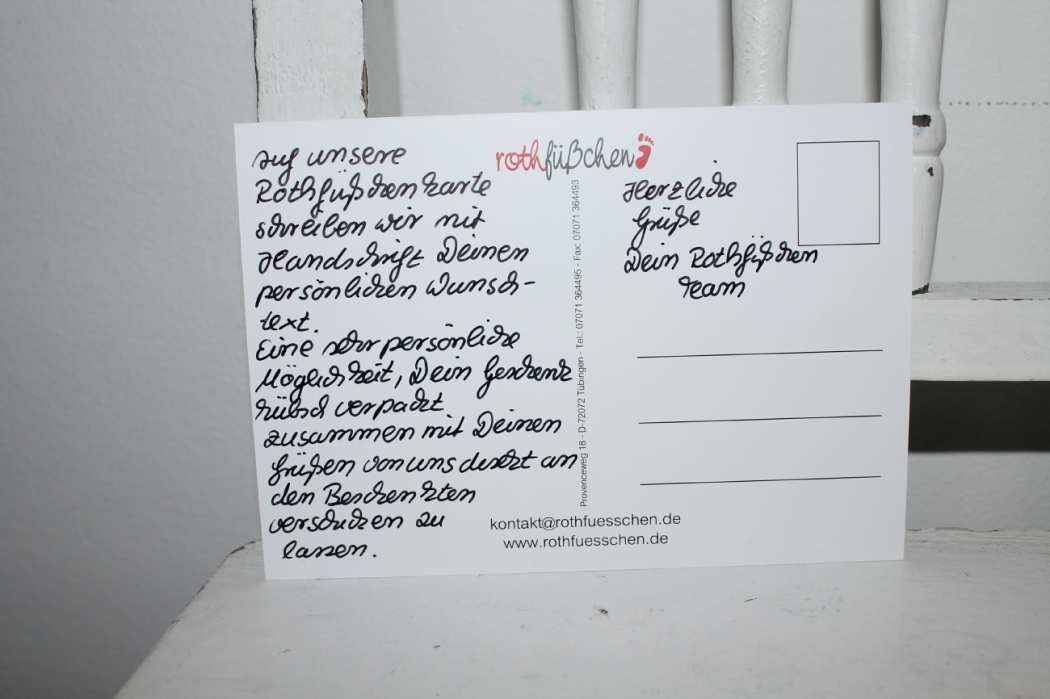 auf unsere
Rothfüßchenkarte
schreiben wir mit
Handschrift Deinen
persönlichen Wunsch-
text.
Eine sehr persönliche
Möglichkeit, Dein Geschenk
hübsch verpackt
zusammen mit Deinen
Grüßen von uns direkt an
den Beschenkten
verschicken zu
lassen.
rothfüßchen
Provenceweg 18 - D-72072 Tübingen - Tel.: 07071 364495 - Fax: 07071 364493
Herzliche
Grüße
Dein Rothfüßchen
team
kontakt@rothfuesschen.de
www.rothfuesschen.de